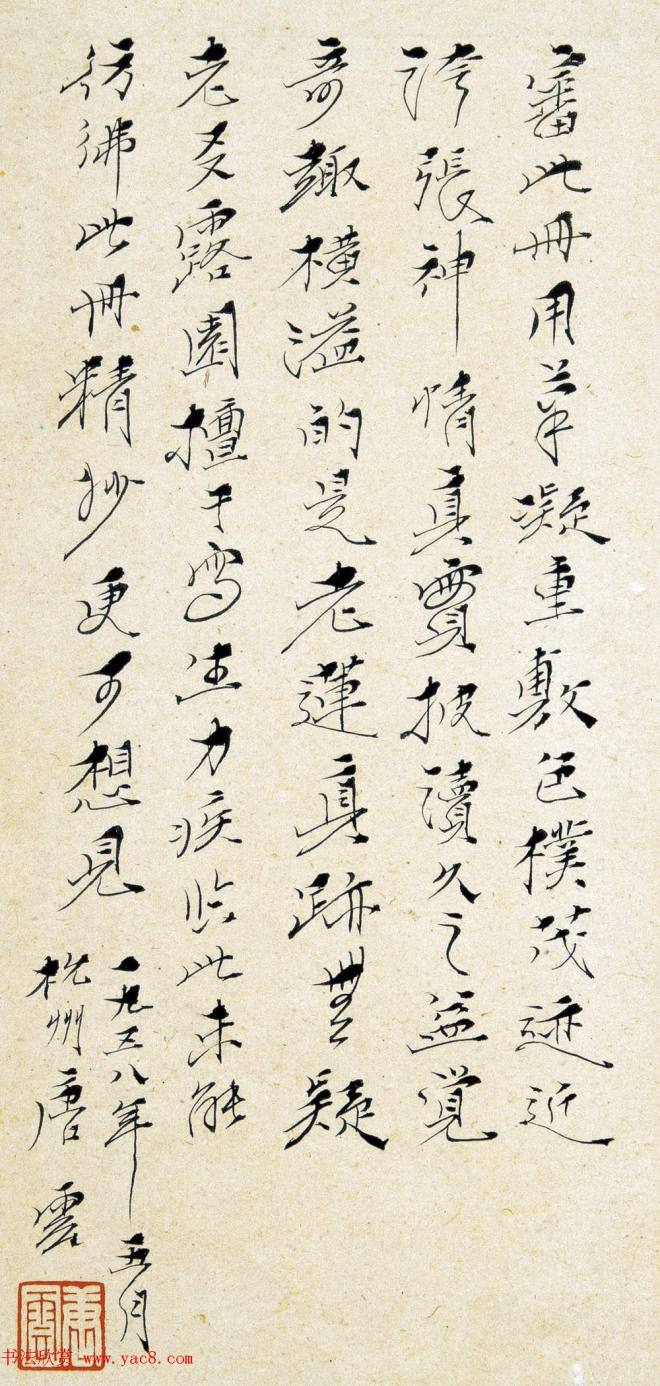 審此冊用筆凝重敷色樸茂迹近
誇張神情真實披讀久之益覚
奇趣橫溢的是老蓮真跡無疑
老友露園擅于寫生力疾临此未能
彷彿此冊精妙更可想見
一九五八年五月
杭州唐雲
唐雲
书法欣赏 www.yac8.com